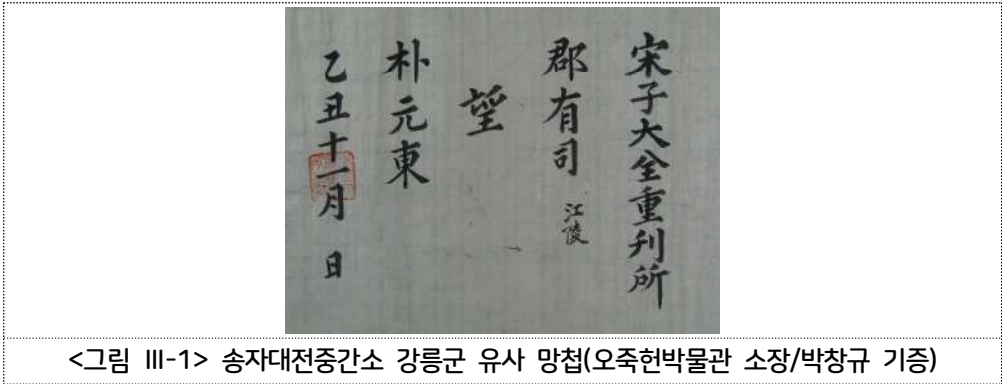 宋子大全重刋所
郡有司 江陵
望
朴元東
乙丑十一月 日
<그림 Ⅲ-1> 송자대전중간소 강릉군 유사 망첩(오죽헌박물관 소장/박창규 기증)